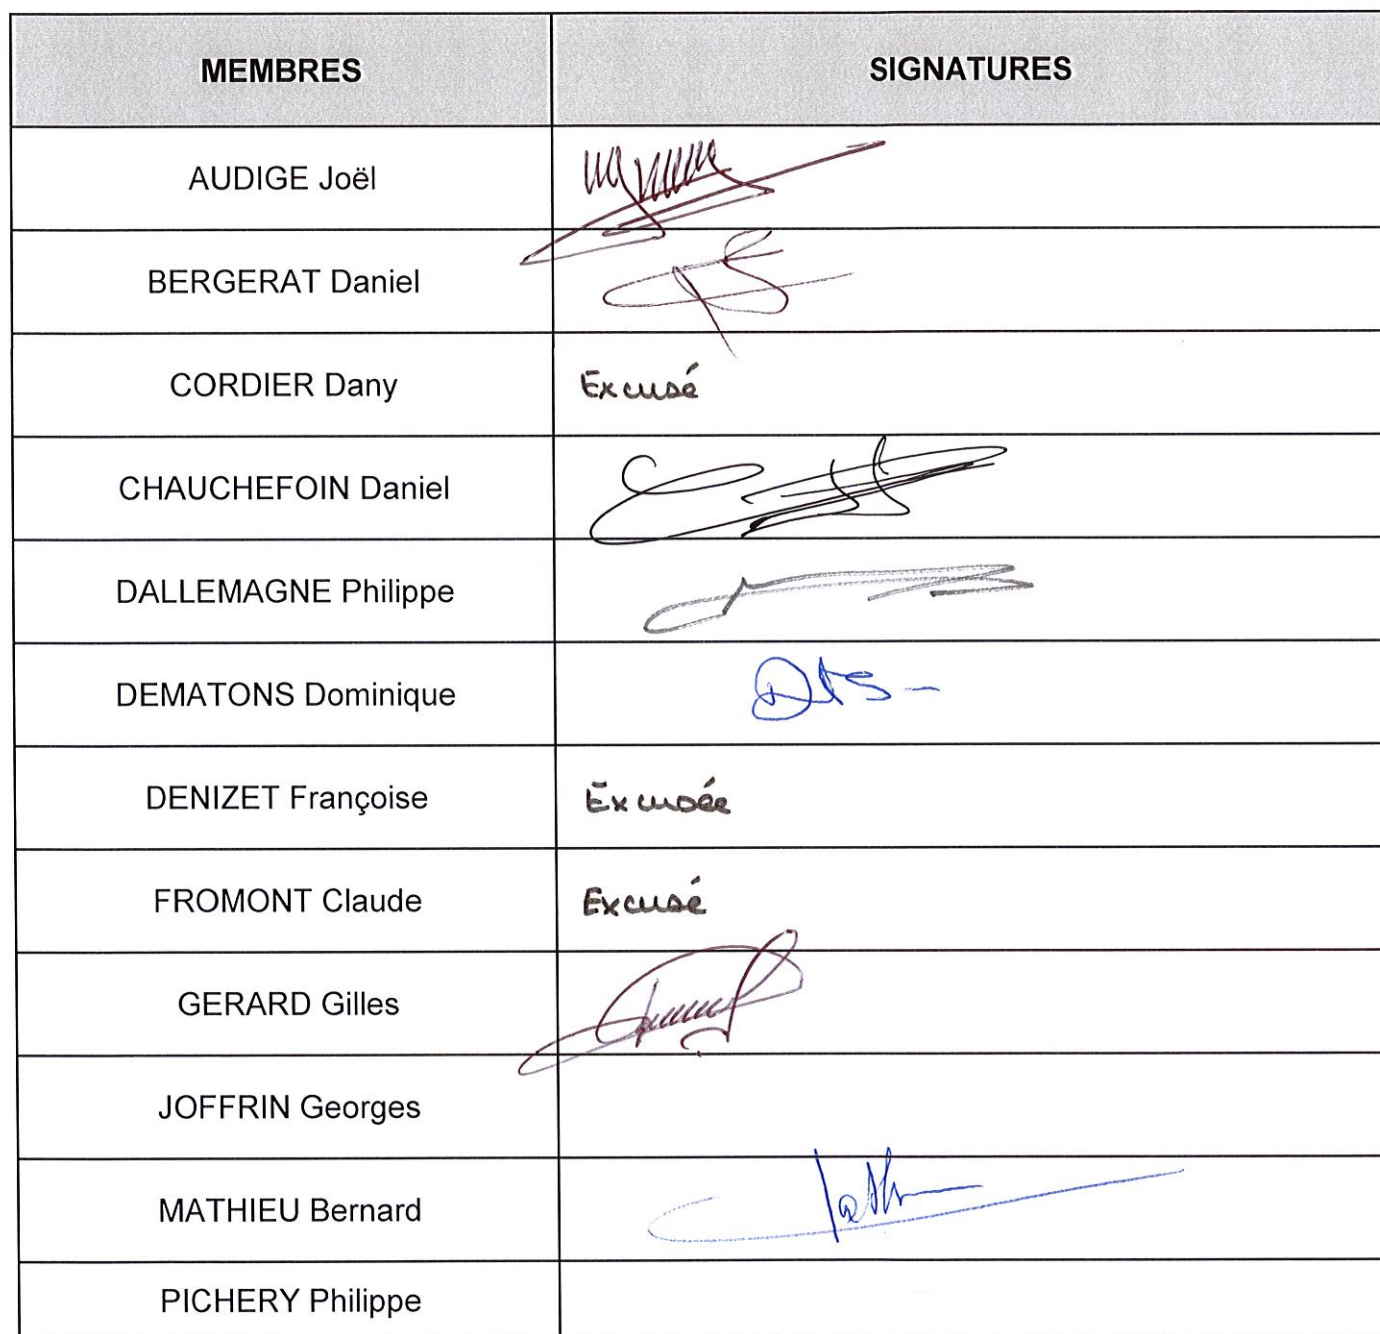 MEMBRES SIGNATURES
AUDIGE Joël
BERGERAT Daniel
CORDIER Dany Excusé
CHAUCHEFOIN Daniel
DALLEMAGNE Philippe
DEMATONS Dominique
DENIZET Françoise Excusée
FROMONT Claude Excusé
GERARD Gilles
JOFFRIN Georges
MATHIEU Bernard
PICHERY Philippe